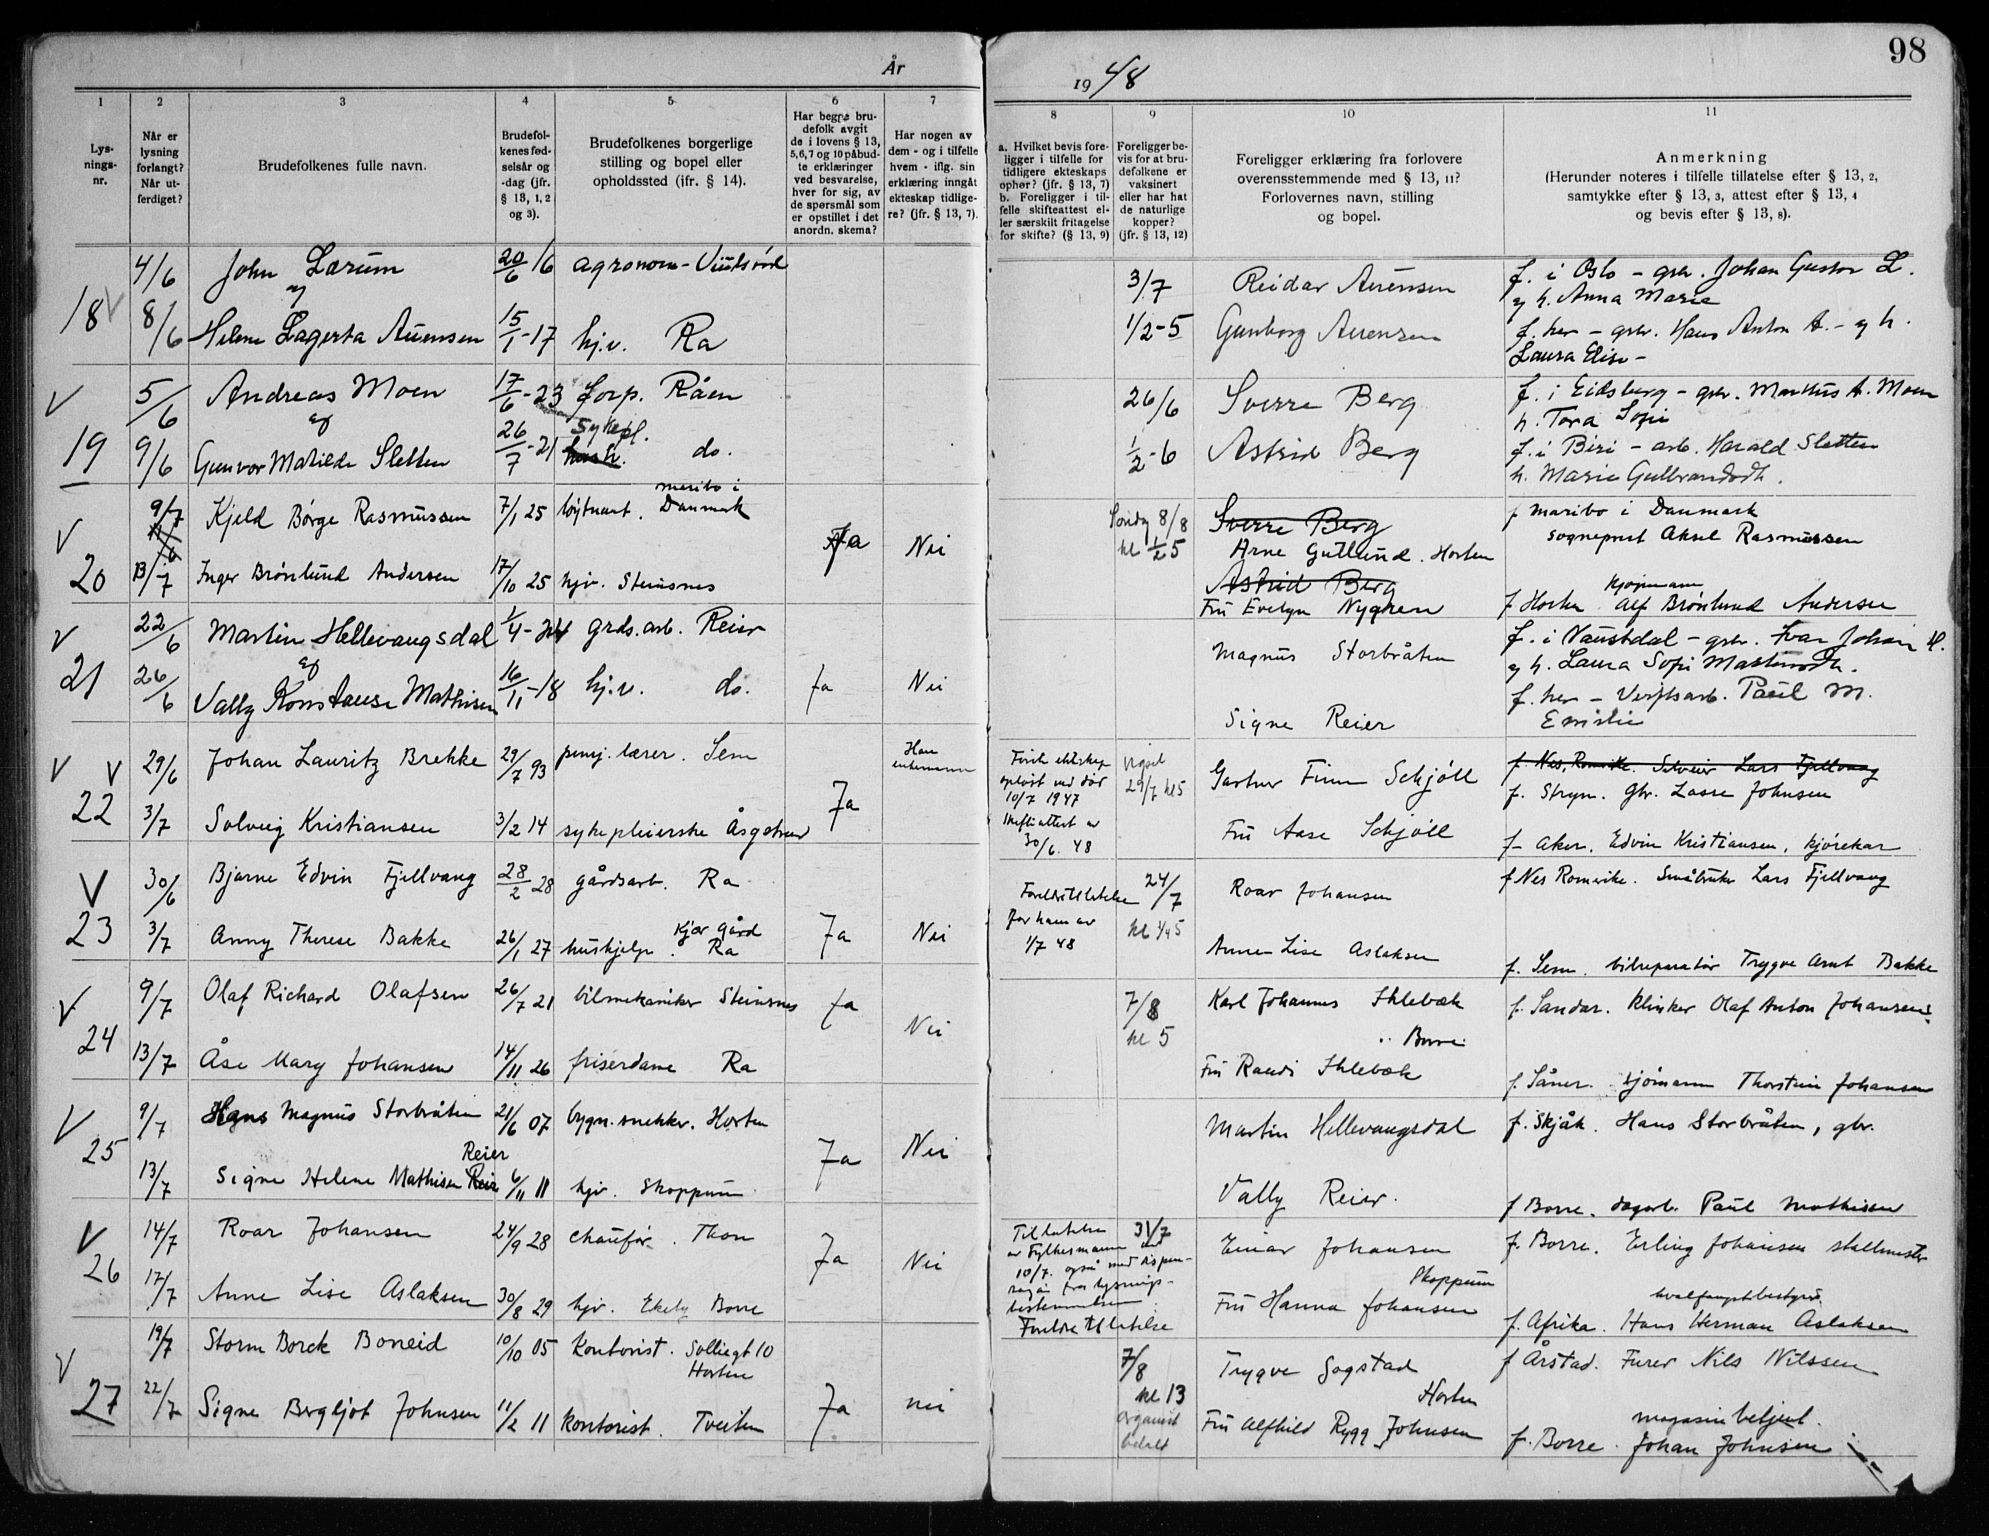 År
1948
98
1
2
3
4
5
6
7
8
9
10
11
Lys-
nings-
nr.
Når er
lysning
forlangt?
Når ut-
ferdiget?
Brudefolkenes fulle navn.
Brudefol-
kenes fød-
selsår og
-dag (jfr.
§ 13, 1, 2
og 3).
Brudefolkenes borgerlige
stilling og bopel eller
opholdssted (jfr. § 14).
Har begge bru-
defolk avgit
de i lovens § 13,
5, 6, 7 og 10 påbud-
te erklæringer
ved besvarelse,
hver for sig, av
de spørsmål som
er opstillet i det
anordn. skema?
Har nogen av
dem - og i tilfelle
hvem - iflg. sin
erklæring inngåt
ekteskap tidlige-
re? (jfr. § 13, 7).
a. Hvilket bevis fore-
ligger i tilfelle for
tidligere ekteskaps
ophør? (jfr. § 13, 7)
b. Foreligger i til-
felle skifteattest el-
ler særskilt fritagelse
for skifte? (§ 13, 9)
Foreligger be-
vis for at bru-
defolkene er
vaksinert
eller har hat
de naturlige
kopper?
(jfr. § 13, 12)
Foreligger erklæring fra forlovere
overensstemmende med § 13, 11?
Forlovernes navn, stilling
og bopel.
Anmerkning
(Herunder noteres i tilfelle tillatelse efter § 13, 2,
samtykke efter § 13, 3, attest efter § 13, 4
og bevis efter § 13, 8).
18
4/6 John Lærum 20/6 16 agronom - 3/7 Reidar Auensen f. i Oslo - gbr. Johan Gustav L.
og
og h. Anna Marie
8/6 Helene Lagerta Auensen 15/1 - 17 hj.v. Ra 1/2 - 5 Gunborg Auensen f. her - gbr. Hans Anton A. - og h.
Laura Elise -
19
5/6 Andreas Moen 17/6 - 23 Korp. Råen 26/6 Sverre Berg f. i Eidsberg - gbr. Markus A. Moen
og
h. Tora Sofie
9/6 Gunvor Matilde Sletten 26/7 - 21 Sykepl. do. 1/2 - 6 Astrid Berg f. i Biri - arb. Harald Sletten
h. Marie Gulbrandsdt.
20
9/7 Kjeld Børge Rasmussen 7/1 25 løytnant. maribo i Danmark Ja Nei Søndag 8/8 kl 1/2 5 Sverre Berg f maribo i Danmark
sogneprest Aksel Rasmussen
Arne Gutlund. Horten
13/7 Inger Brønlund Andersen 17/10 25 hjv. Steinsnes Astrid Berg
Fru Evelyn Nygren f Horten kjøpmann Alf Brønlund Andersen
21
22/6 Martin Hellevangsdal 1/4 - 24 grds.arb. Reier Magnus Storbråten f. i Naustdal - gbr. Ivar Johan H.
og
og h. Laura Sofi
26/6 Vally Konstanse Mathisen 16/11 - 18 hj.v. do. Ja Nei Signe Reier f. her - Verftsarb. Paul M.
Emilie
22
29/6 Johan Lauritz Brekke 29/7 93 pensj. lærer. Sem Han enkemann Første ekteskap
opløst ved død
10/7 1947
Skifteattest av
30/6. 48
vigsel
29/7 kl 5
Gartner Finn Schjöll f. Nes, Romerike. Lars Fjellvang
f. Stryn. Gbr. Lasse Johnsen
3/7 Solveig Kristiansen 3/2 14 sykepleierske Åsgstrand Ja Fru Aase Schjöll f- Aker. Edvin Kristiansen, kjørekar
23
30/6 Bjarne Edvin Fjellvang 28/2 28 gårdsarb. Ra Foreldretillatelse
for ham av
1/7 48
24/7
kl 1/4 5
Roar Johansen f Nes Romerike. Småbruker Lars Fjellvang
3/7 Anny Therese Bakke 26/1 27 hushjelp. Kjær gård Ra Ja Nei Anne Lise Aslaksen f. Sem. bilreparatør Trygve Arnt Bakke
24
9/7 Olaf Richard Olafsen 26/7 21 bilmekaniker Steinsnes Ja Nei 7/8
kl 5
Karl Johannes Ihlebæk
" Borre
f. Sandar. Klinker Olaf Anton Johansen
13/7 Åse Mary Johansen 14/11 26 friserdame Ra Fru Randi Ihlebæk f. Såner. sjömann Thorstein Johansen
25
9/7 Hans Magnus Storbråten 21/6 07 bygn.snekker. Horten Martin Hellevangsdal f. Skjåk. Hans Storbråten, gbr.
Reier
13/7 Signe Helene Mathisen Reier 6/11 11 hjv. Skoppum Ja Nei Vally Reier. f Borre. dagarb. Paul Mathisen
26
14/7 Roar Johansen 24/9 28 chauför. Thon Ja Nei Tillatelse
av Fylkesmannen
10/7. også med dispen-
sasjon fra lysnings-
bestemmelsen
Foreldretillatelse
31/7
Einar Johansen
Skoppum
f. Borre. Erling Johansen stallmester
17/7 Anne Lise Aslaksen 30/8 29 hjv. Ekely Borre Fru Hanna Johansen hvalfangstbestyrer
f. Afrika. Hans Herman Aslaksen
27
19/7 Storm Borck Boneid 10/10 05 Kontorist. Solliegt 10
Horten
7/8
kl 13
organist
betalt
Trygve Sogstad
Horten
f Årstad. Furer Nils Nilssen
22/7 Signe Bergljot Johnsen 11/2 11 kontorist. Tveiten Ja nei Fru Alfhild Rygg Johnsen magasinbetjent.
f. Borre. Johan Johnsen